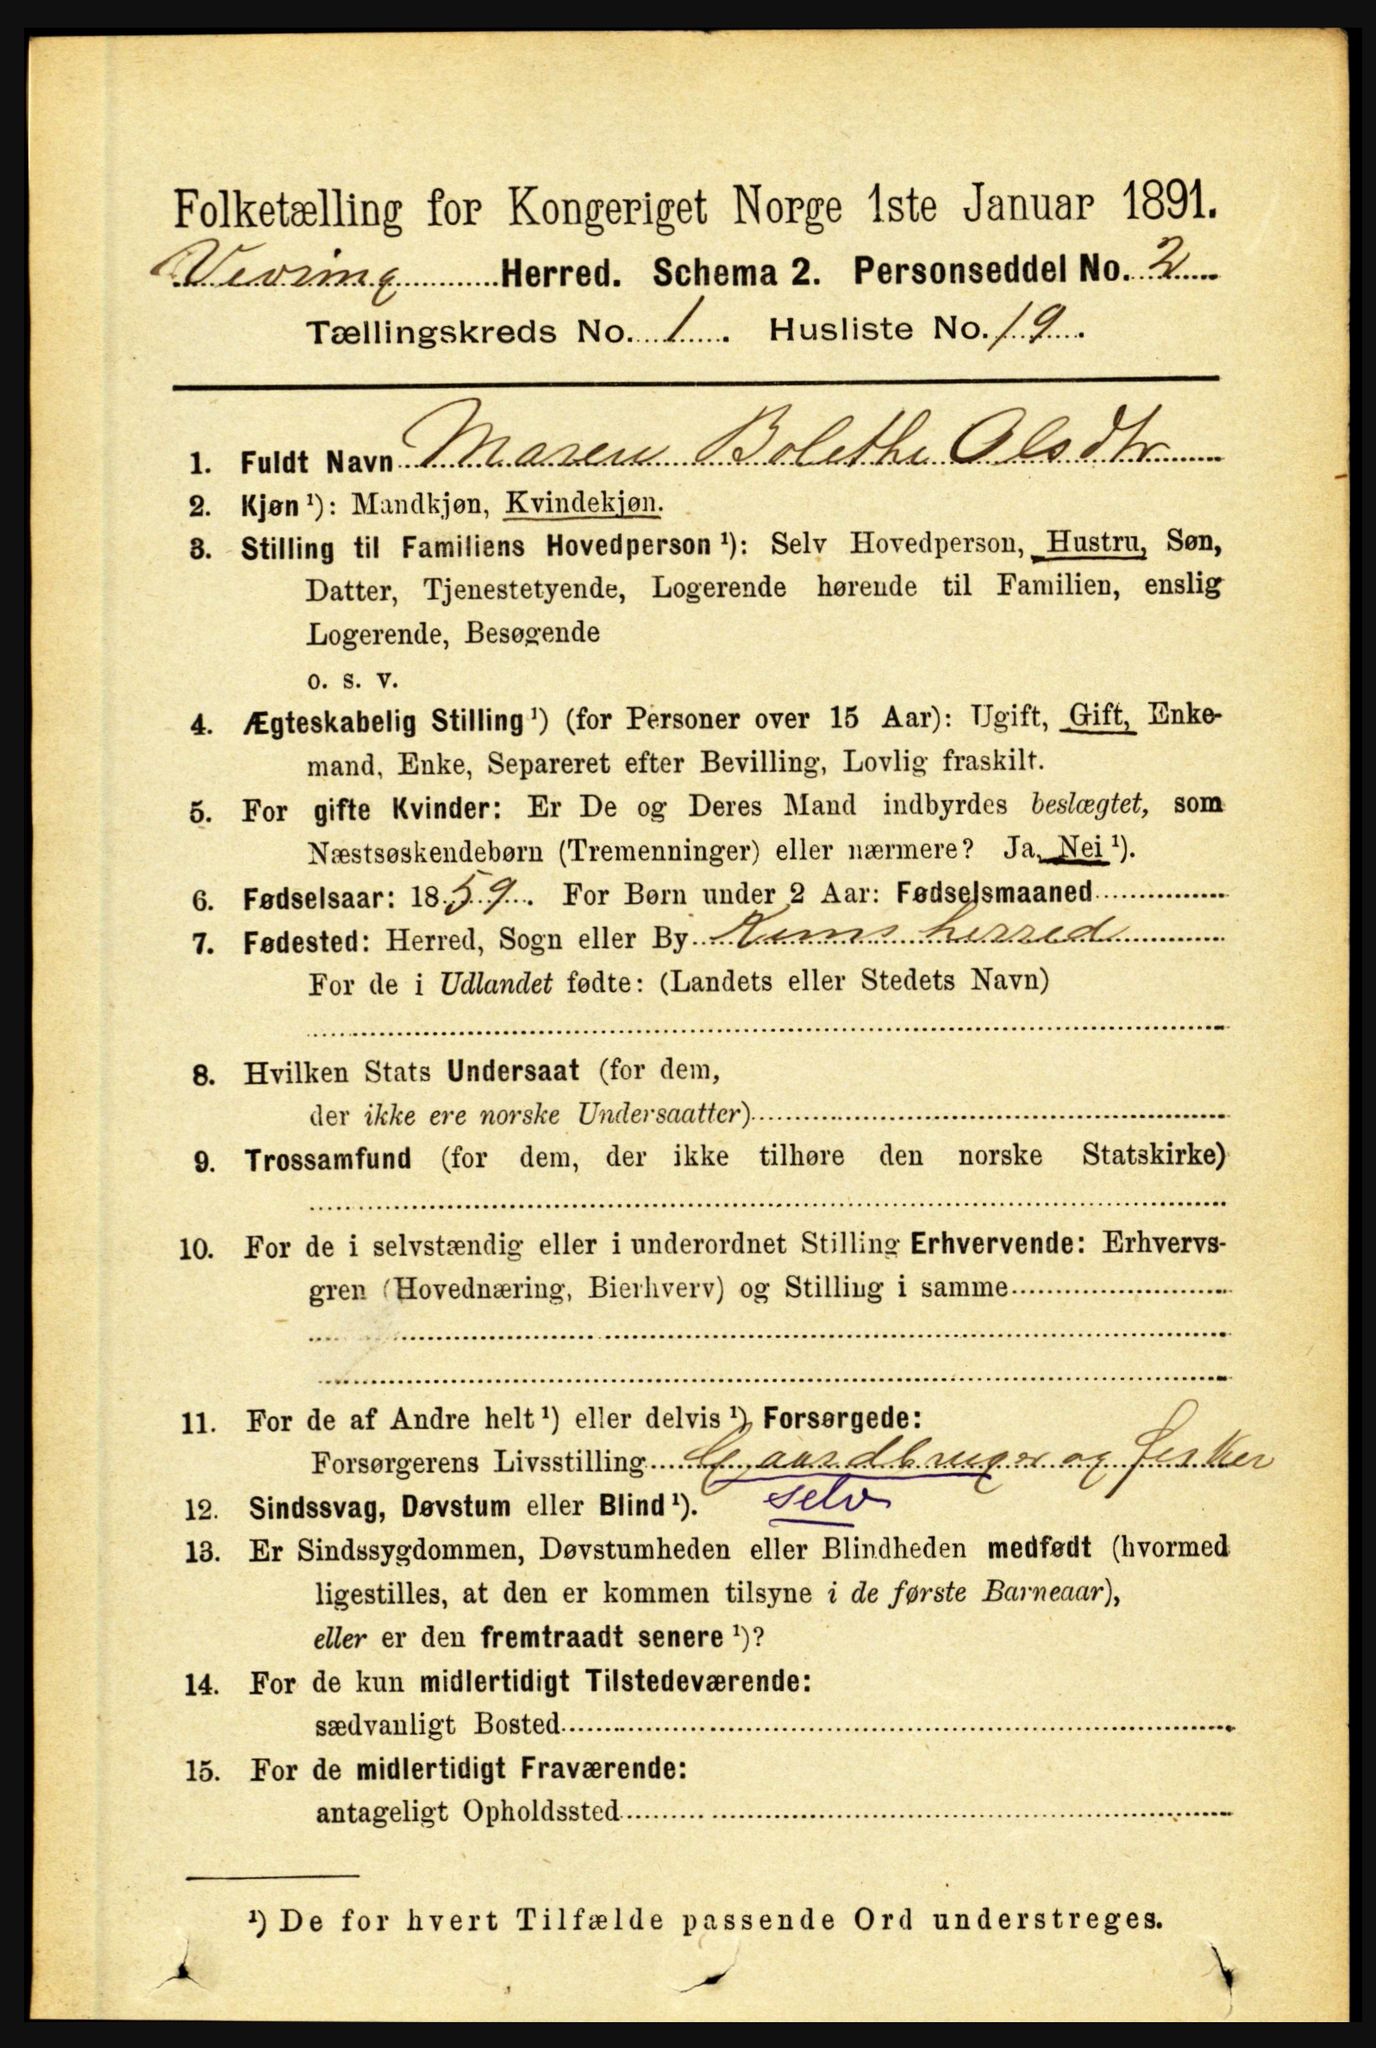 Folketælling for Kongeriget Norge 1ste Januar 1891.
Vevring Herred. Schema 2. Personseddel No. 2
Tællingskreds No. 1. Husliste No. 19.
1. Fuldt Navn Maren Bolethe Olsdtr
2. Kjøn ¹): Mandkjøn, Kvindekjøn.
3. Stilling til Familiens Hovedperson ¹): Selv Hovedperson, Hustru, Søn,
Datter, Tjenestetyende, Logerende hørende til Familien, enslig
Logerende, Besøgende
o. s. v.
4. Ægteskabelig Stilling ¹) (for Personer over 15 Aar): Ugift, Gift, Enke-
mand, Enke, Separeret efter Bevilling, Lovlig fraskilt.
5. For gifte Kvinder: Er De og Deres Mand indbyrdes beslægtet, som
Næstsøskendebørn (Tremenninger) eller nærmere? Ja, Nei ¹).
6. Fødselsaar: 1859. For Børn under 2 Aar: Fødselsmaaned
7. Fødested: Herred, Sogn eller By Kinns herred
For de i Udlandet fødte: (Landets eller Stedets Navn)
8. Hvilken Stats Undersaat (for dem,
der ikke ere norske Undersaatter)
9. Trossamfund (for dem, der ikke tilhøre den norske Statskirke)
10. For de i selvstændig eller i underordnet Stilling Erhvervende: Erhvervs-
gren (Hovednæring, Bierhverv) og Stilling i samme
11. For de af Andre helt ¹) eller delvis ¹) Forsørgede:
Forsørgerens Livsstilling Gaardbruger og fisker
12. Sindssvag, Døvstum eller Blind ¹). selv
13. Er Sindssygdommen, Døvstumheden eller Blindheden medfødt (hvormed
ligestilles, at den er kommen tilsyne i de første Barneaar),
eller er den fremtraadt senere ¹)?
14. For de kun midlertidigt Tilstedeværende:
sædvanligt Bosted
15. For de midlertidigt Fraværende:
antageligt Opholdssted
¹) De for hvert Tilfælde passende Ord understreges.